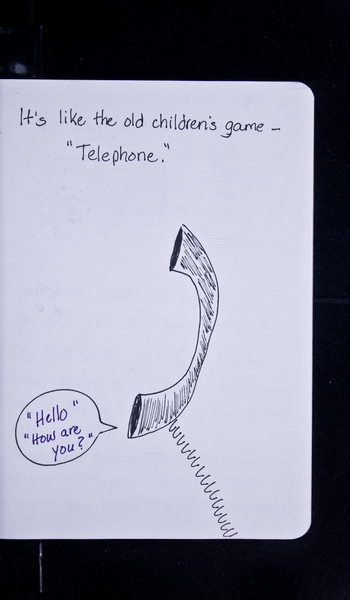 It's like the old children's game –
"Telephone."
"Hello"
"How are
you?"